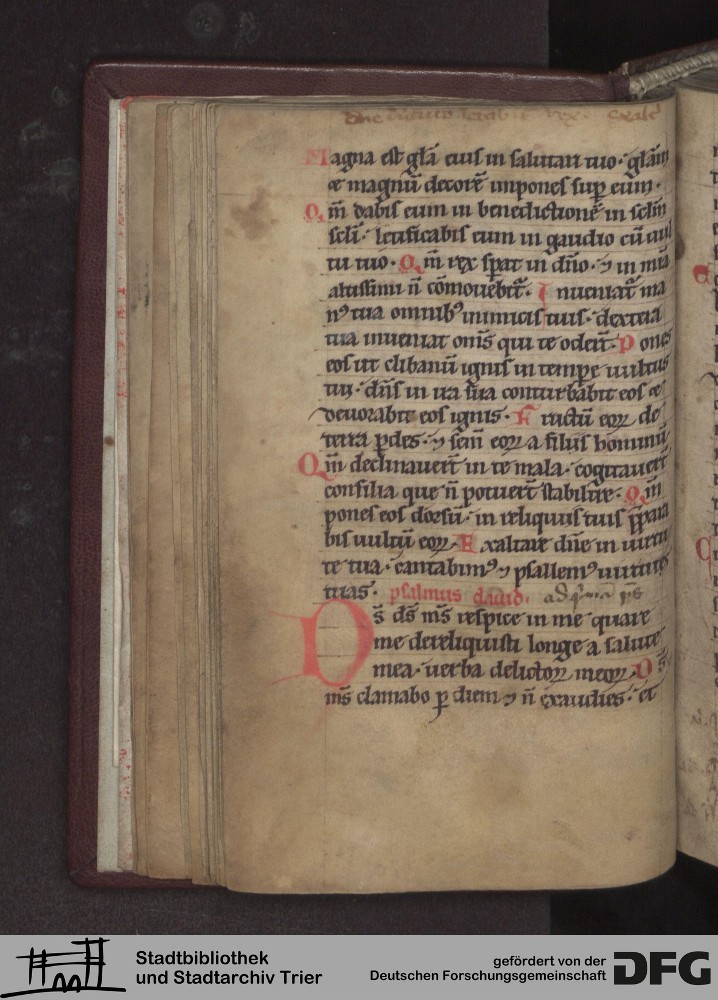 Dne in virtute letabit rex. exalt
Magna est gla eius in salutari tuo· glam
& magnu decore impones sup eum·
Qm dabis eum in benedictione in sclm
scli· letificabis eum in gaudio cu uul
tu tuo· Qm rex sperat in dno· & in mia
altissimi n comouebit· Inueniat ma
n9 tua omnib9 inimicis tuis· dextera
tua inueniat oms qui te odert· Pones
eos ut clibanu ignis in tempe uultus
tui· dns in ira sua conturbabit eos &
deuorabit eos ignis· Fructu eoꝝ de
terra pdes· & sem eoꝝ a filiis hominu
Qm declinauert in te mala· cogitauert
consilia que n potuert stabilire· Qm
pones eos dorsu· in reliquiis tuis ppara
bis uultu eoꝝ· Exaltare dne in uirtu
te tua· cantabim9 & psallem9 uirtutes
tuas· psalmus dauid.
Ds ds ms respice in me quare
me dereliquisti longe a salute
mea· uerba delictoꝝ meoꝝ· Ds
ms clamabo p diem & n exaudies· et
Stadtbibliothek
und Stadtarchiv Trier
gefördert von der
Deutschen Forschungsgemeinschaft
DFG